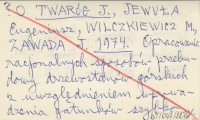 20 TWARÓG J., JEWUŁA
Eugeniusz, WILCZKIEWICZ M.,
ZAWADA J. 1974. Opracowanie
racjonalnych sposobów przebu-
dowy drzewostanów górskich
z uwzględnieniem wprowa-
dzenia gatunków szybko